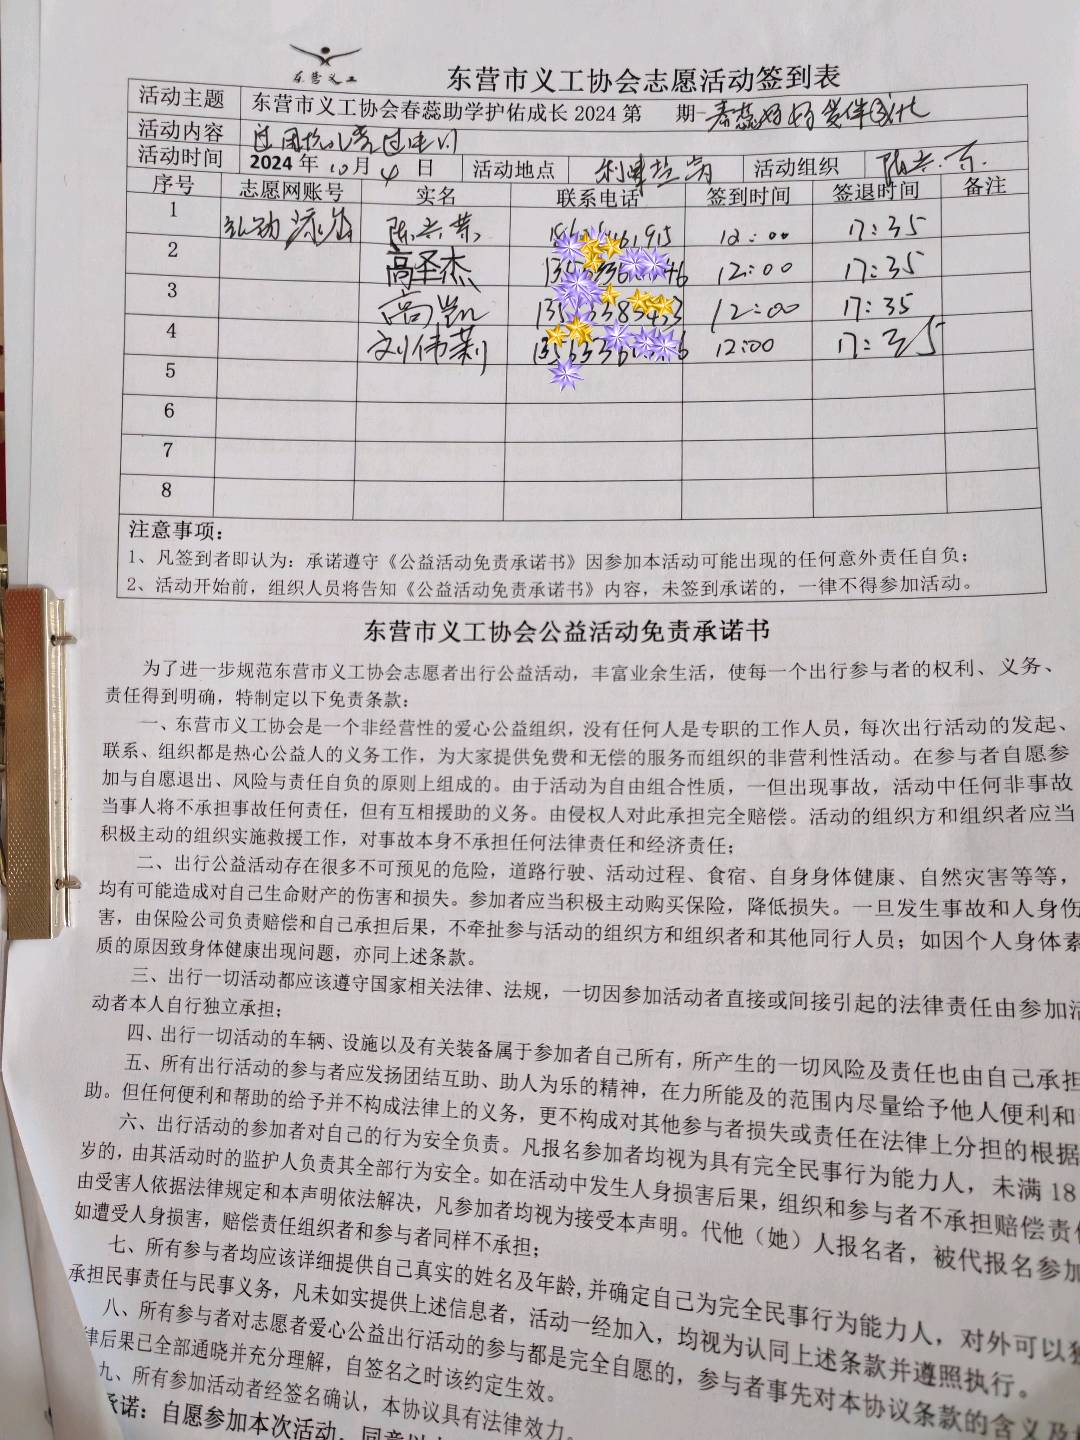 东营义工
东营市义工协会志愿活动签到表
活动主题 东营市义工协会春蕊助学护佑成长 2024 第 期-春蕊
活动内容
活动时间 2024 年 10 月 4 日 活动地点 利津 活动组织
序号 志愿网账号 实名 联系电话 签到时间 签退时间 备注
1 12:00 17:35
2 高泽杰 12:00 17:35
3 高凯 12:00 17:35
4 刘伟莉 12:00 17:35
5
6
7
8
注意事项:
1、凡签到者即认为：承诺遵守《公益活动免责承诺书》因参加本活动可能出现的任何意外责任自负；
2、活动开始前，组织人员将告知《公益活动免责承诺书》内容，未签到承诺的，一律不得参加活动。
东营市义工协会公益活动免责承诺书
为了进一步规范东营市义工协会志愿者出行公益活动，丰富业余生活，使每一个出行参与者的权利、义务、
责任得到明确，特制定以下免责条款：
一、东营市义工协会是一个非经营性的爱心公益组织，没有任何人是专职的工作人员，每次出行活动的发起、
联系、组织都是热心公益人的义务工作，为大家提供免费和无偿的服务而组织的非营利性活动。在参与者自愿参
加与自愿退出、风险与责任自负的原则上组成的。由于活动为自由组合性质，一但出现事故，活动中任何非事故
当事人将不承担事故任何责任，但有互相援助的义务。由侵权人对此承担完全赔偿。活动的组织方和组织者应当
积极主动的组织实施救援工作，对事故本身不承担任何法律责任和经济责任；
二、出行公益活动存在很多不可预见的危险，道路行驶、活动过程、食宿、自身身体健康、自然灾害等等，
均有可能造成对自己生命财产的伤害和损失。参加者应当积极主动购买保险，降低损失。一旦发生事故和人身伤
害，由保险公司负责赔偿和自己承担后果，不牵扯参与活动的组织方和组织者和其他同行人员；如因个人身体素
质的原因致身体健康出现问题，亦同上述条款。
三、出行一切活动都应该遵守国家相关法律、法规，一切因参加活动者直接或间接引起的法律责任由参加活
动者本人自行独立承担；
四、出行一切活动的车辆、设施以及有关装备属于参加者自己所有，所产生的一切风险及责任也由自己承担
五、所有出行活动的参与者应发扬团结互助、助人为乐的精神，在力所能及的范围内尽量给予他人便利和
助。但任何便利和帮助的给予并不构成法律上的义务，更不构成对其他参与者损失或责任在法律上分担的根据
六、出行活动的参加者对自己的行为安全负责。凡报名参加者均视为具有完全民事行为能力人，未满 18
岁的，由其活动时的监护人负责其全部行为安全。如在活动中发生人身损害后果，组织和参与者不承担赔偿责任
由受害人依据法律规定和本声明依法解决，凡参加者均视为接受本声明。代他（她）人报名者，被代报名参加
如遭受人身损害，赔偿责任组织者和参与者同样不承担；
七、所有参与者均应该详细提供自己真实的姓名及年龄,并确定自己为完全民事行为能力人，对外可以独
承担民事责任与民事义务，凡未如实提供上述信息者，活动一经加入，均视为认同上述条款并遵照执行。
八、所有参与者对志愿者爱心公益出行活动的参与都是完全自愿的，参与者事先对本协议条款的含义及
律后果已全部通晓并充分理解，自签名之时该约定生效。
九、所有参加活动者经签名确认，本协议具有法律效力。
承诺：自愿参加本次活动，同意以